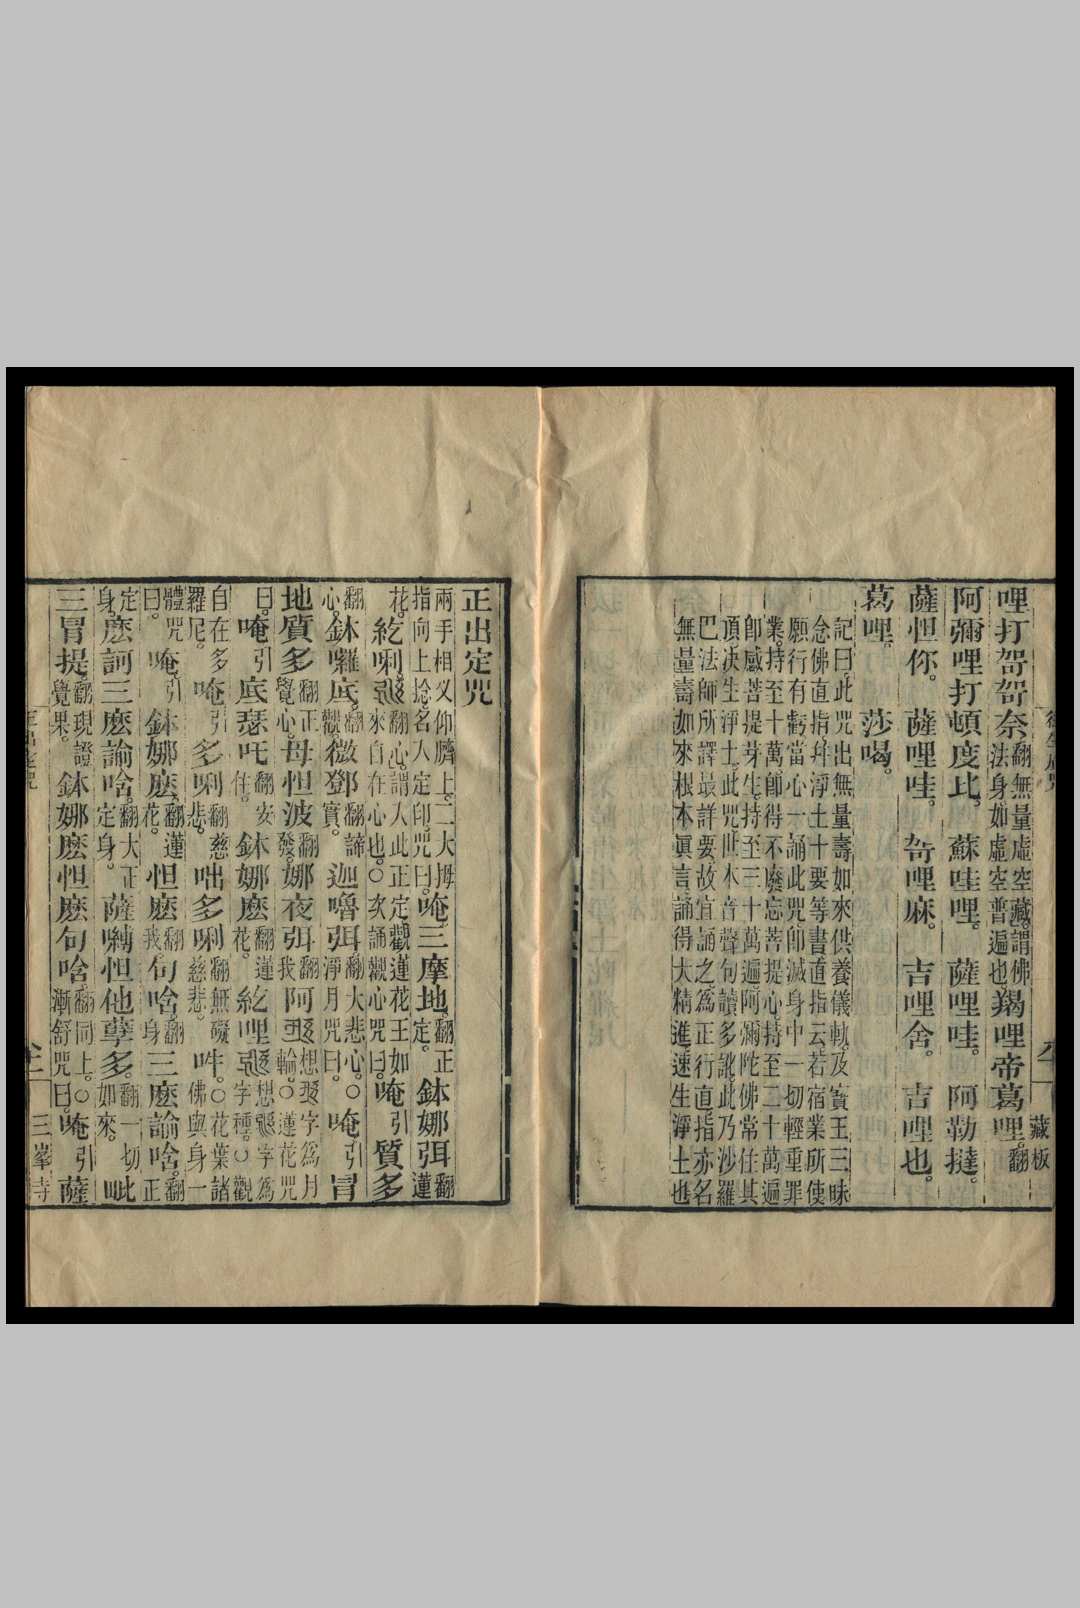 哩打哿哿奈翻無量虛空藏。謂佛法身如虛空普遍也羯哩帝葛哩。翻
阿彌哩打頓度比。蘇哇哩。薩哩哇。阿勒撻。
薩怛你。薩哩哇。哿哩麻。吉哩舍。吉哩也。
葛哩。莎喝。
記曰。此咒出無量壽如來供養儀軌。及寶王三昧
念佛直指。幷淨土十要等書。直指云。若宿業所使
願行有虧。當心一誦此咒。卽滅身中一切輕重罪
業。持至十萬。卽得不廢忘菩提心。持至二十萬遍
卽感菩提芽生。持至三十萬遍。阿彌陀佛常住其
頂。決生淨土。此咒世本音聲句讀多訛。此乃沙羅
巴法師所譯最詳要。故宜誦之爲正行。直指亦名
無量壽如來根本眞言。誦得大精進速生淨土也
藏板
正出定咒
兩手相叉仰臍上。二大拇
指向上捻。名入定印。咒曰。唵。三摩地。翻正定。鉢娜弭翻蓮
花。紇唎翻心。謂入此正定觀蓮花王如來自在心也。○次誦觀心咒曰。唵引質多
翻心。鉢囉底。翻觀。微鄧翻諦實。迦嚕弭翻大悲心。○淨月咒曰。唵引冐
地質多翻正覺心。母怛波翻發。娜夜弭翻我阿想字爲月輪。○蓮花咒
曰。唵引底瑟吒翻安住。鉢娜麽翻蓮花。紇哩想字爲字種。○觀
自在多羅尼。唵引多唎翻慈悲。咄多唎翻無礙慈悲。吽。○花葉諸佛與身一
體咒曰。唵引鉢娜麽。翻蓮花。怛麽翻我句啥翻身三麽諭啥。翻正
定身。麽訶三麽諭啥。翻大正定身。薩嚩怛他孽多。翻一切如來。毗
三冐提。翻現證覺果。鉢娜麽怛麽句啥翻同上。○漸舒咒曰。唵引薩
三峯寺